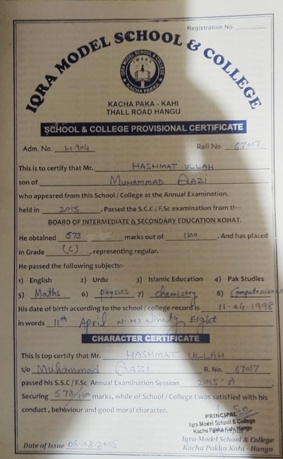 Registration No.
IQRA MODEL SCHOOL & COLLEGE
KACHA PAKA - KAHI
THALL ROAD HANGU
SCHOOL & COLLEGE PROVISIONAL CERTIFICATE
Adm. No. Roll No 67017
This is to certify that Mr. HASHMAT ULLAH
son of MUHAMMAD QAZI
who appeared from this School / College at the Annual Examination,
held in 2015 . Passed the S.C.C / F.Sc examination from the
BOARD OF INTERMEDIATE & SECONDARY EDUCATION KOHAT.
He obtained 573 marks out of 1100 . And has placed
in Grade (C) , representing regular.
He passed the following subjects:-
1) English 2) Urdu 3) Islamic Education 4) Pak Studies
5) Maths 6) Physics 7) chemistry 8)
His date of birth according to the school / college record is 11-04-1998
in words 11th April Ninety Eight
CHARACTER CERTIFICATE
This is top certify that Mr. HASHMAT ULLAH
s/o Muhammad QAZI R. No. 67017
passed his S.S.C / F.Sc Annual Examination Session 2015 A
Securing 573/1100 marks, while of School / College I was satisfied with his
conduct , behaviour and good moral character.
PRINCIPAL
Iqra Model School & College
Kacha Pakka Kahi Hangu
Date of Issue Iqra Model School & College
Kachi Pakka Kahi - Hangu